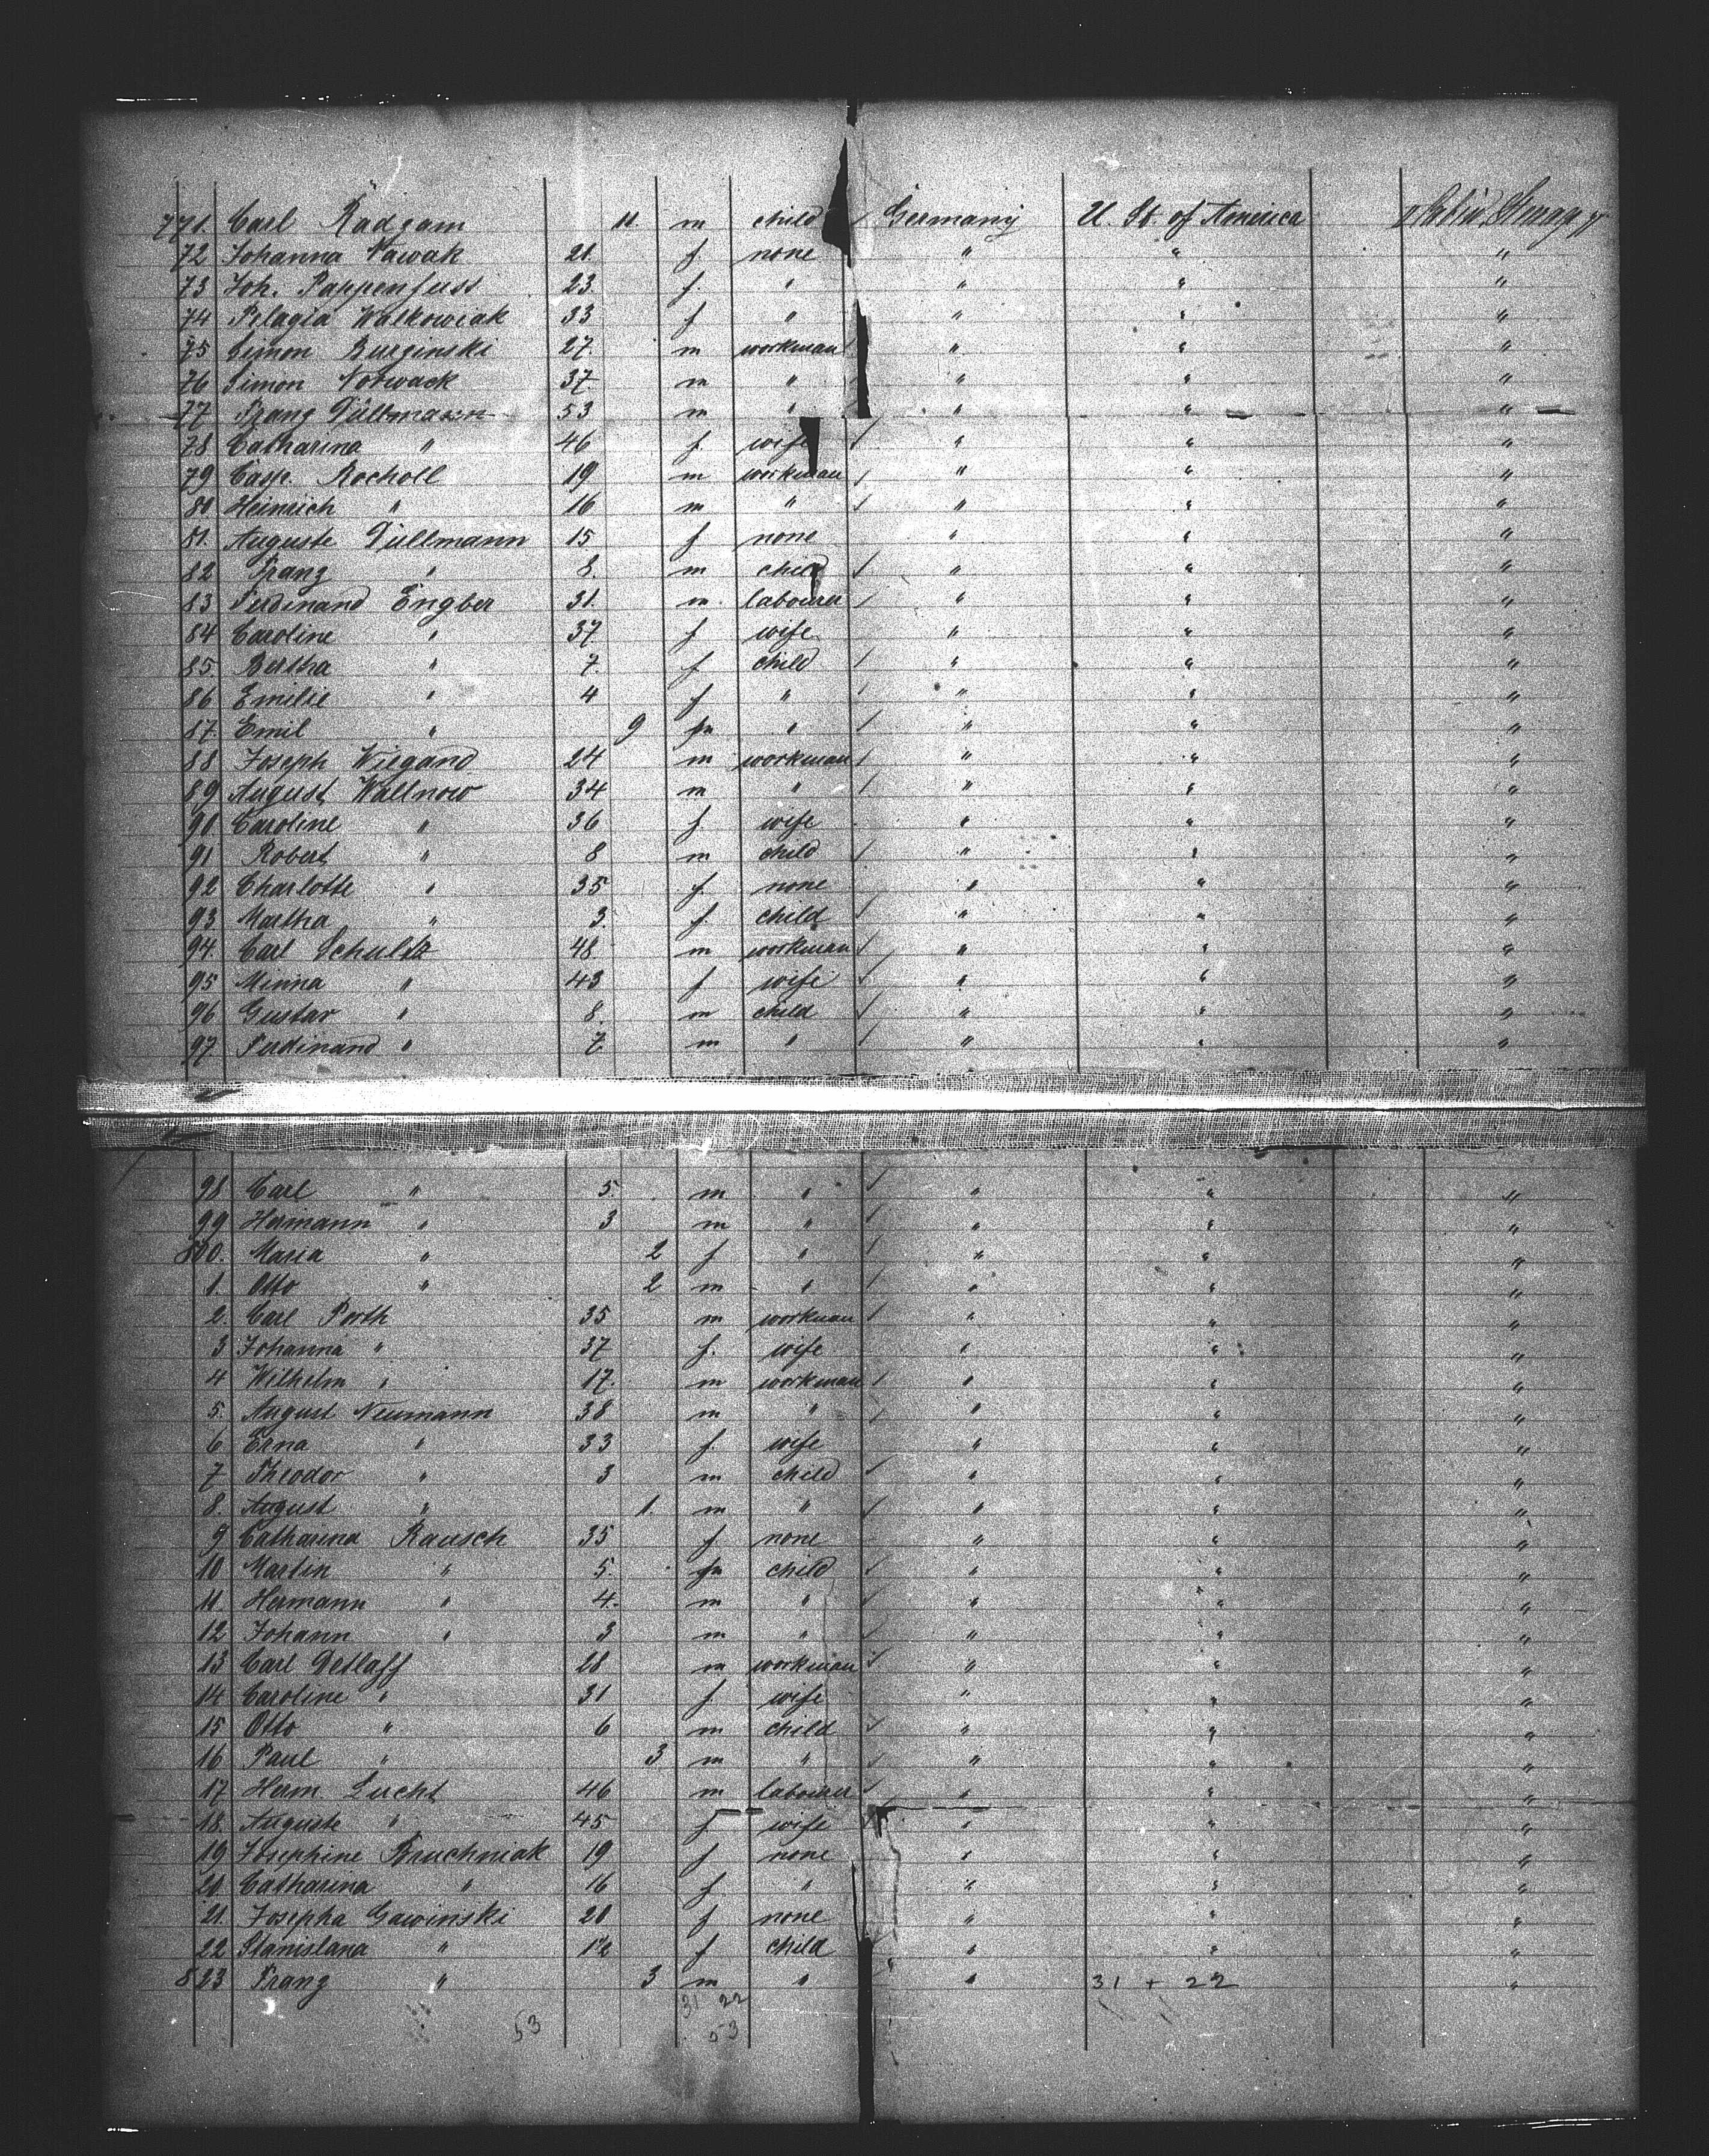 771. Carl Radzom 11. m child Germany U. St. of America
72 Johanna Nawak 21. f. none " " "
73 Joh. Pappenfuss 23. f. " " " "
74 Pelagia Walkowiak 33 f " " " "
75 Simon Burginski 27. m workman " " "
76 Simon Notwack 37. m " " " "
77 Franz Düllmann 53 m " " " "
78 Catharina " 46 f. wife " " "
79 Casp. Rocholl 19 m workman " " "
80 Heinrich " 16 m " " " "
81. Auguste Düllmann 15 f none " " "
82 Franz " 8. m child " " "
83 Ferdinand Engber 31. m. labourer " " "
84 Caroline " 37. f wife " " "
85. Bertha " 7. f child " " "
86 Emilie " 4 f " " " "
87. Emil " 9 m " " " "
88 Joseph Wiegand 24 m workman " " "
89 August Wallnow 34 m " " " "
90 Caroline " 36 f. wife " " "
91 Robert " 8 m child " " "
92 Charlotte " 35 f. none " " "
93 Martha " 3. f child " " "
94. Carl Schultz 48 m workman " " "
95 Minna " 43 f wife " " "
96 Gustav " 8. m child " " "
97 Ferdinand " 7. m " " " "
98 Carl " 5. m " " " "
99 Hermann " 3 m " " " "
800. Maria " 2 f " " " "
1. Otto " 2 m " " " "
2. Carl Porth 35 m workman " " "
3 Johanna " 37 f. wife " " "
4 Wilhelm " 17. m workman " " "
5. August Neumann 38 m " " " "
6 Erna " 33 f. wife " " "
7 Theodor " 3 m child " " "
8. August " 1. m " " " "
9 Catharina Rausch 35 f none " " "
10 Martin " 5. m child " " "
11 Hermann " 4. m " " " "
12 Johann " 3 m " " " "
13 Carl Detlaff 28 m workman " " "
14 Caroline " 31 f wife " " "
15 Otto " 6 m child " " "
16 Paul " 3 m " " " "
17 Herm. Lucht 46 m labourer " " "
18. Auguste " 45 f wife " " "
19 Josephine Bruchniak 19 f none " " "
20. Catharina " 16 f " " " "
21. Josepha Gawinski 20 f none " " "
22 Stanislana " f child " " "
823 Franz " 3 m " " 31 + 22 "
31 22
53 53